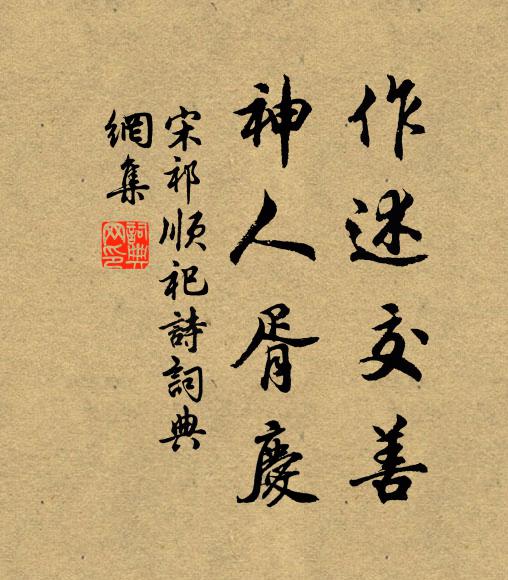 作述交善
神人胥慶
宋祁順祀詩詞典
網集
詞典
网印